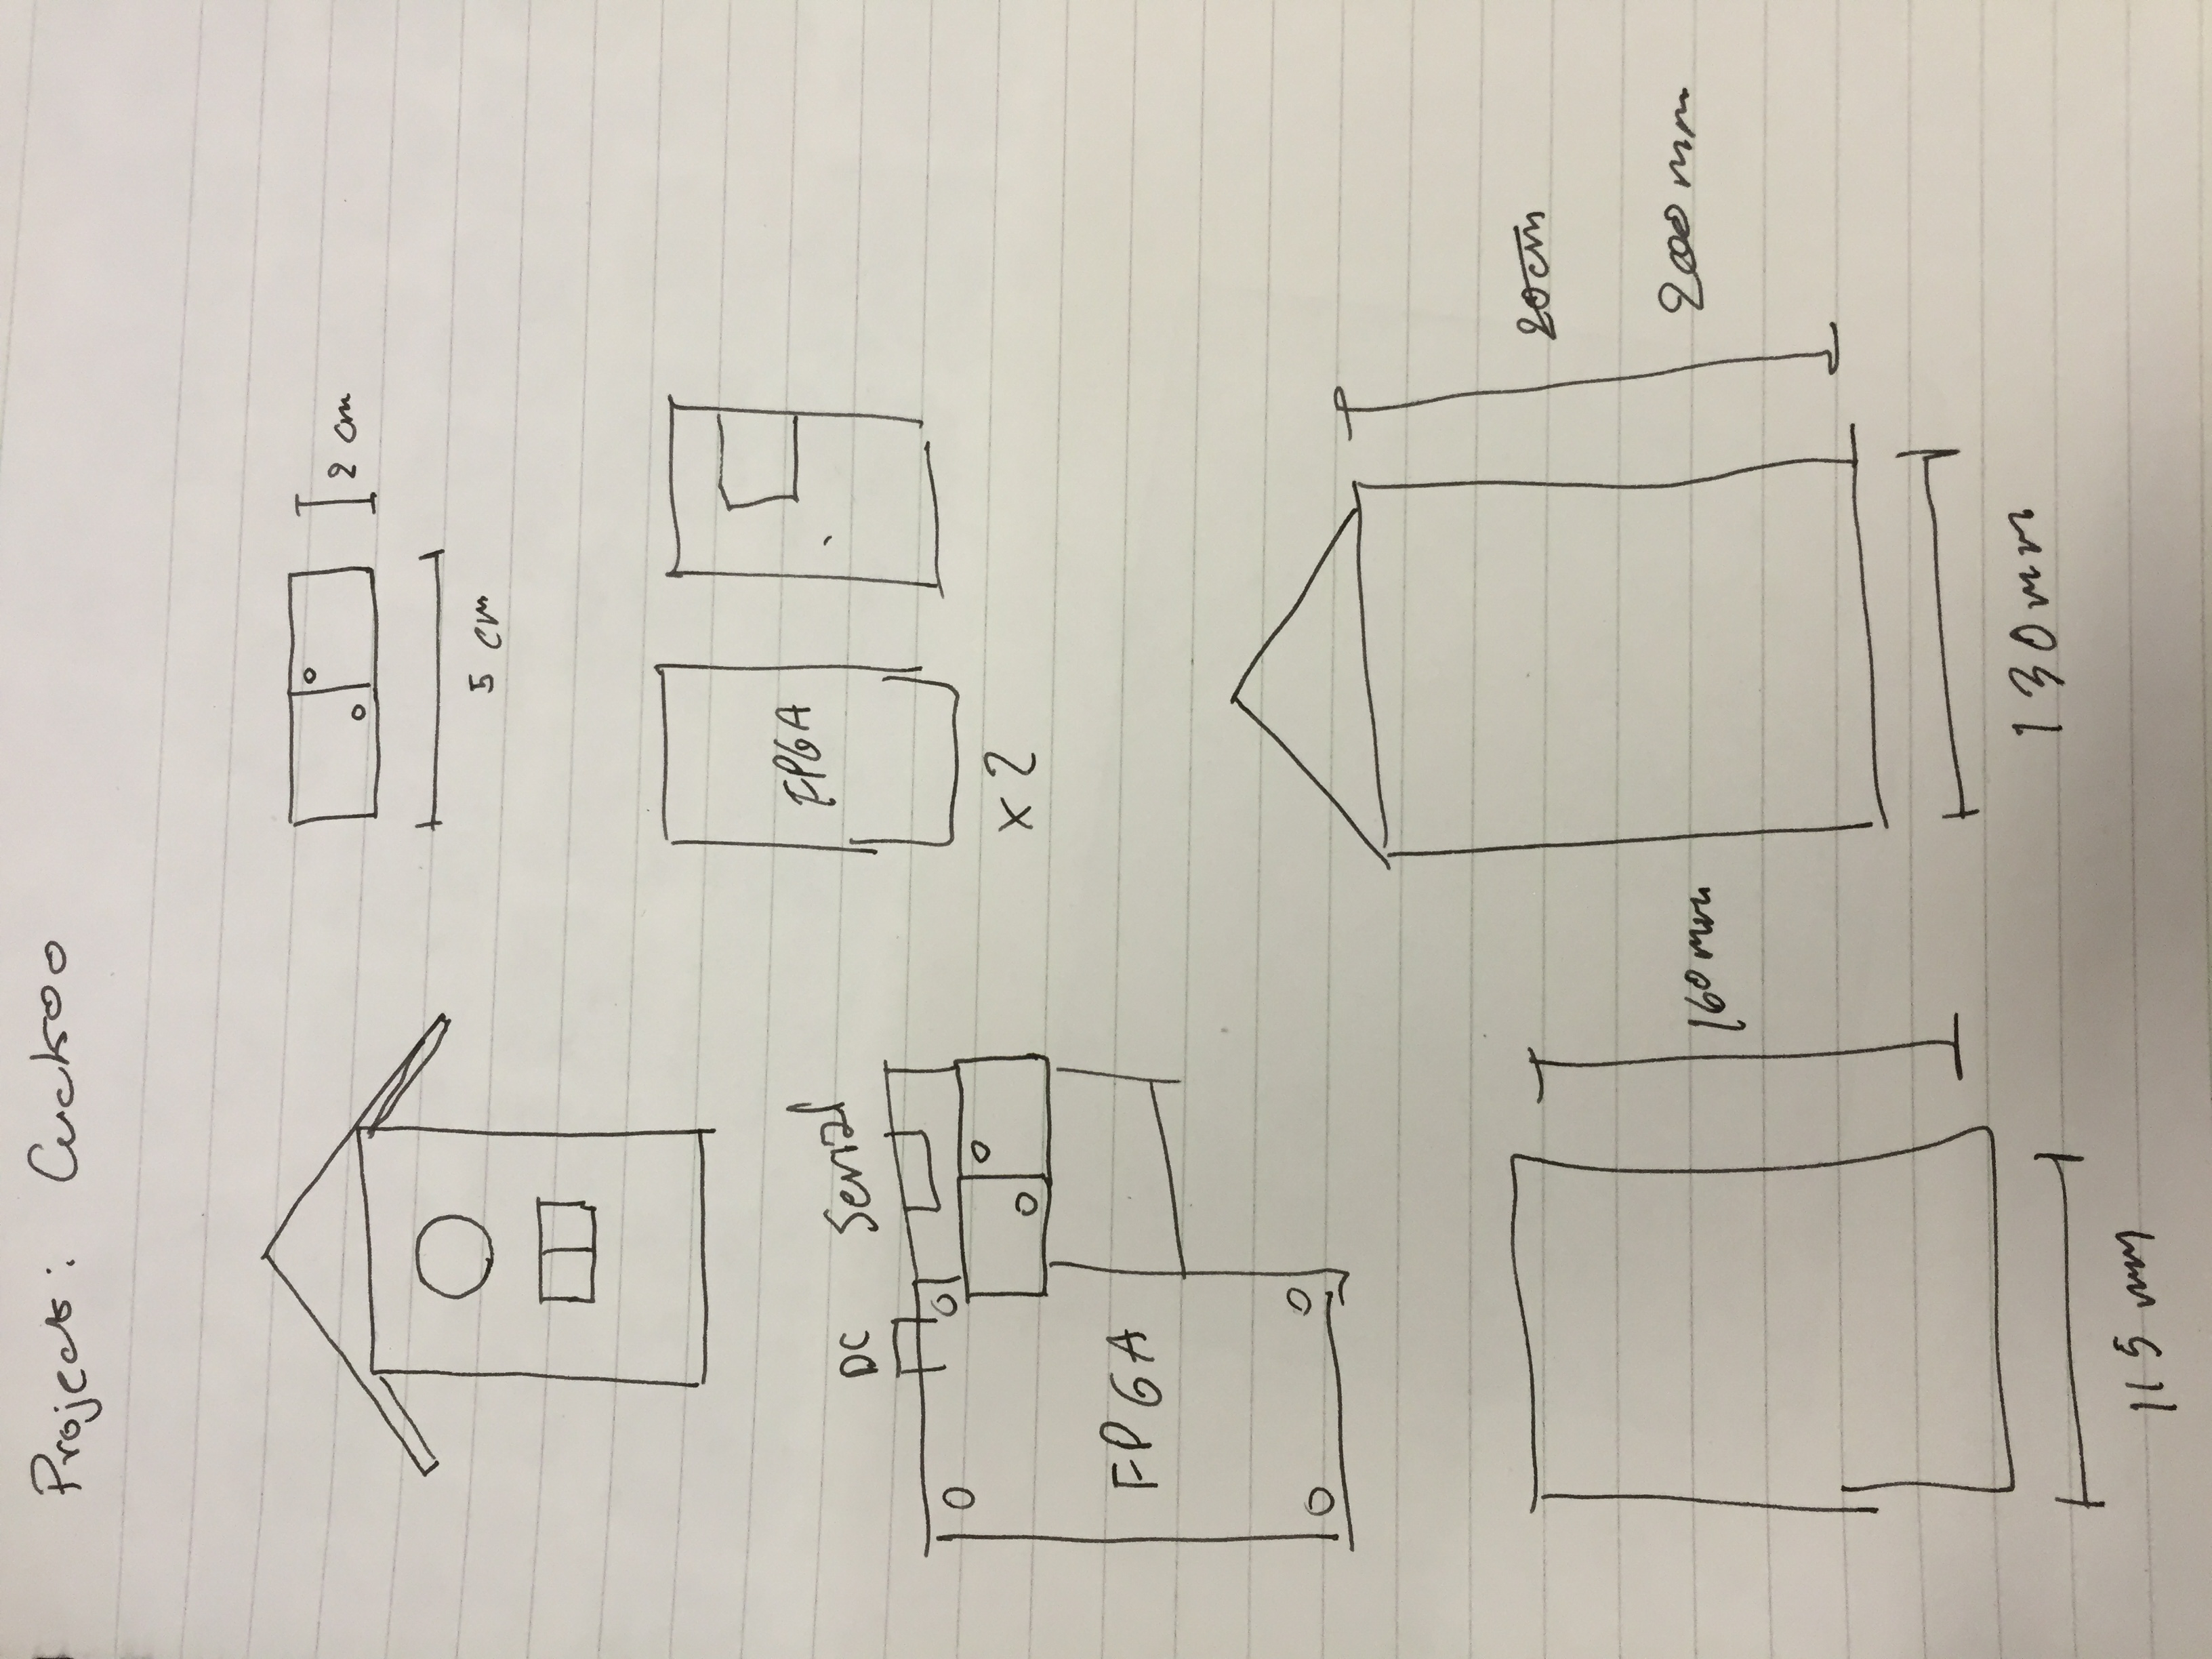 Project: Cuckoo
2 cm
5 cm
FPGA
x2
DC
Serial
FPGA
20cm
200mm
160mm
130mm
115 mm